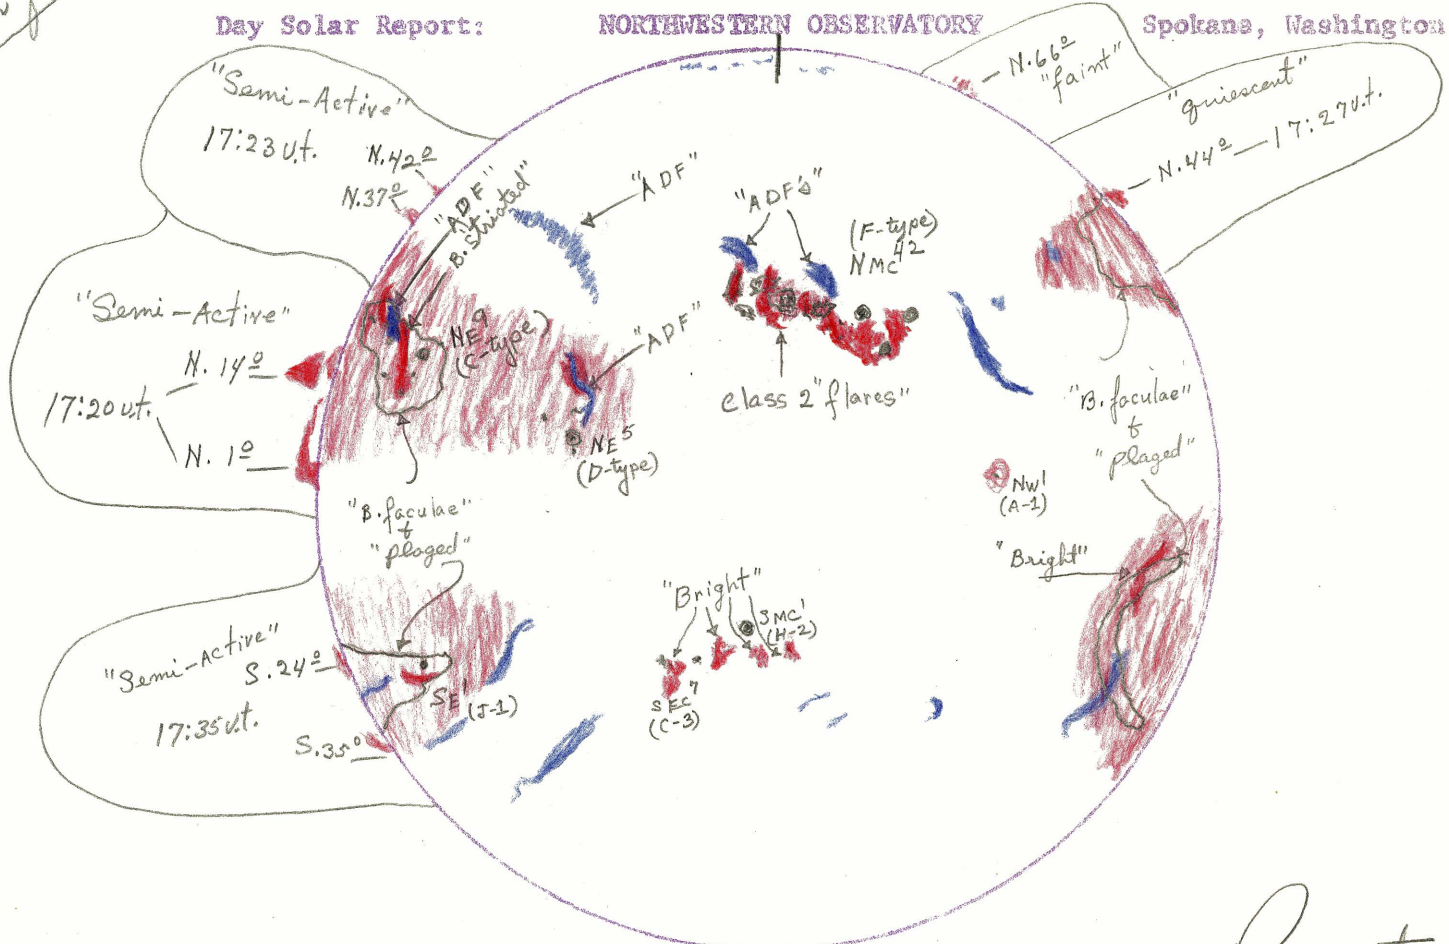 Day Solar Report: NORTHWESTERN OBSERVATORY Spokane, Washington
"Semi-Active"
17:23 u.t.
N.42º
N.37º
"ADF"
B. Striated"
"ADF"
"ADF's"
(F-type)
NMC42
N.66º
"faint"
"quiescent"
N.44º — 17:27u.t.
"Semi-Active"
N. 14º
17:20 u.t.
N. 1º
NE9
(C-type)
"ADF"
NE5
(D-type)
Class 2 "flares"
"B. faculae"
&
"plaged"
NW1
(A-1)
"Bright"
"B. faculae"
&
"plaged"
"Bright"
SMC1
(H-2)
SEC7
(C-3)
"Semi-Active"
S.24º
17:35u.t.
S.35º
SE1
(J-1)